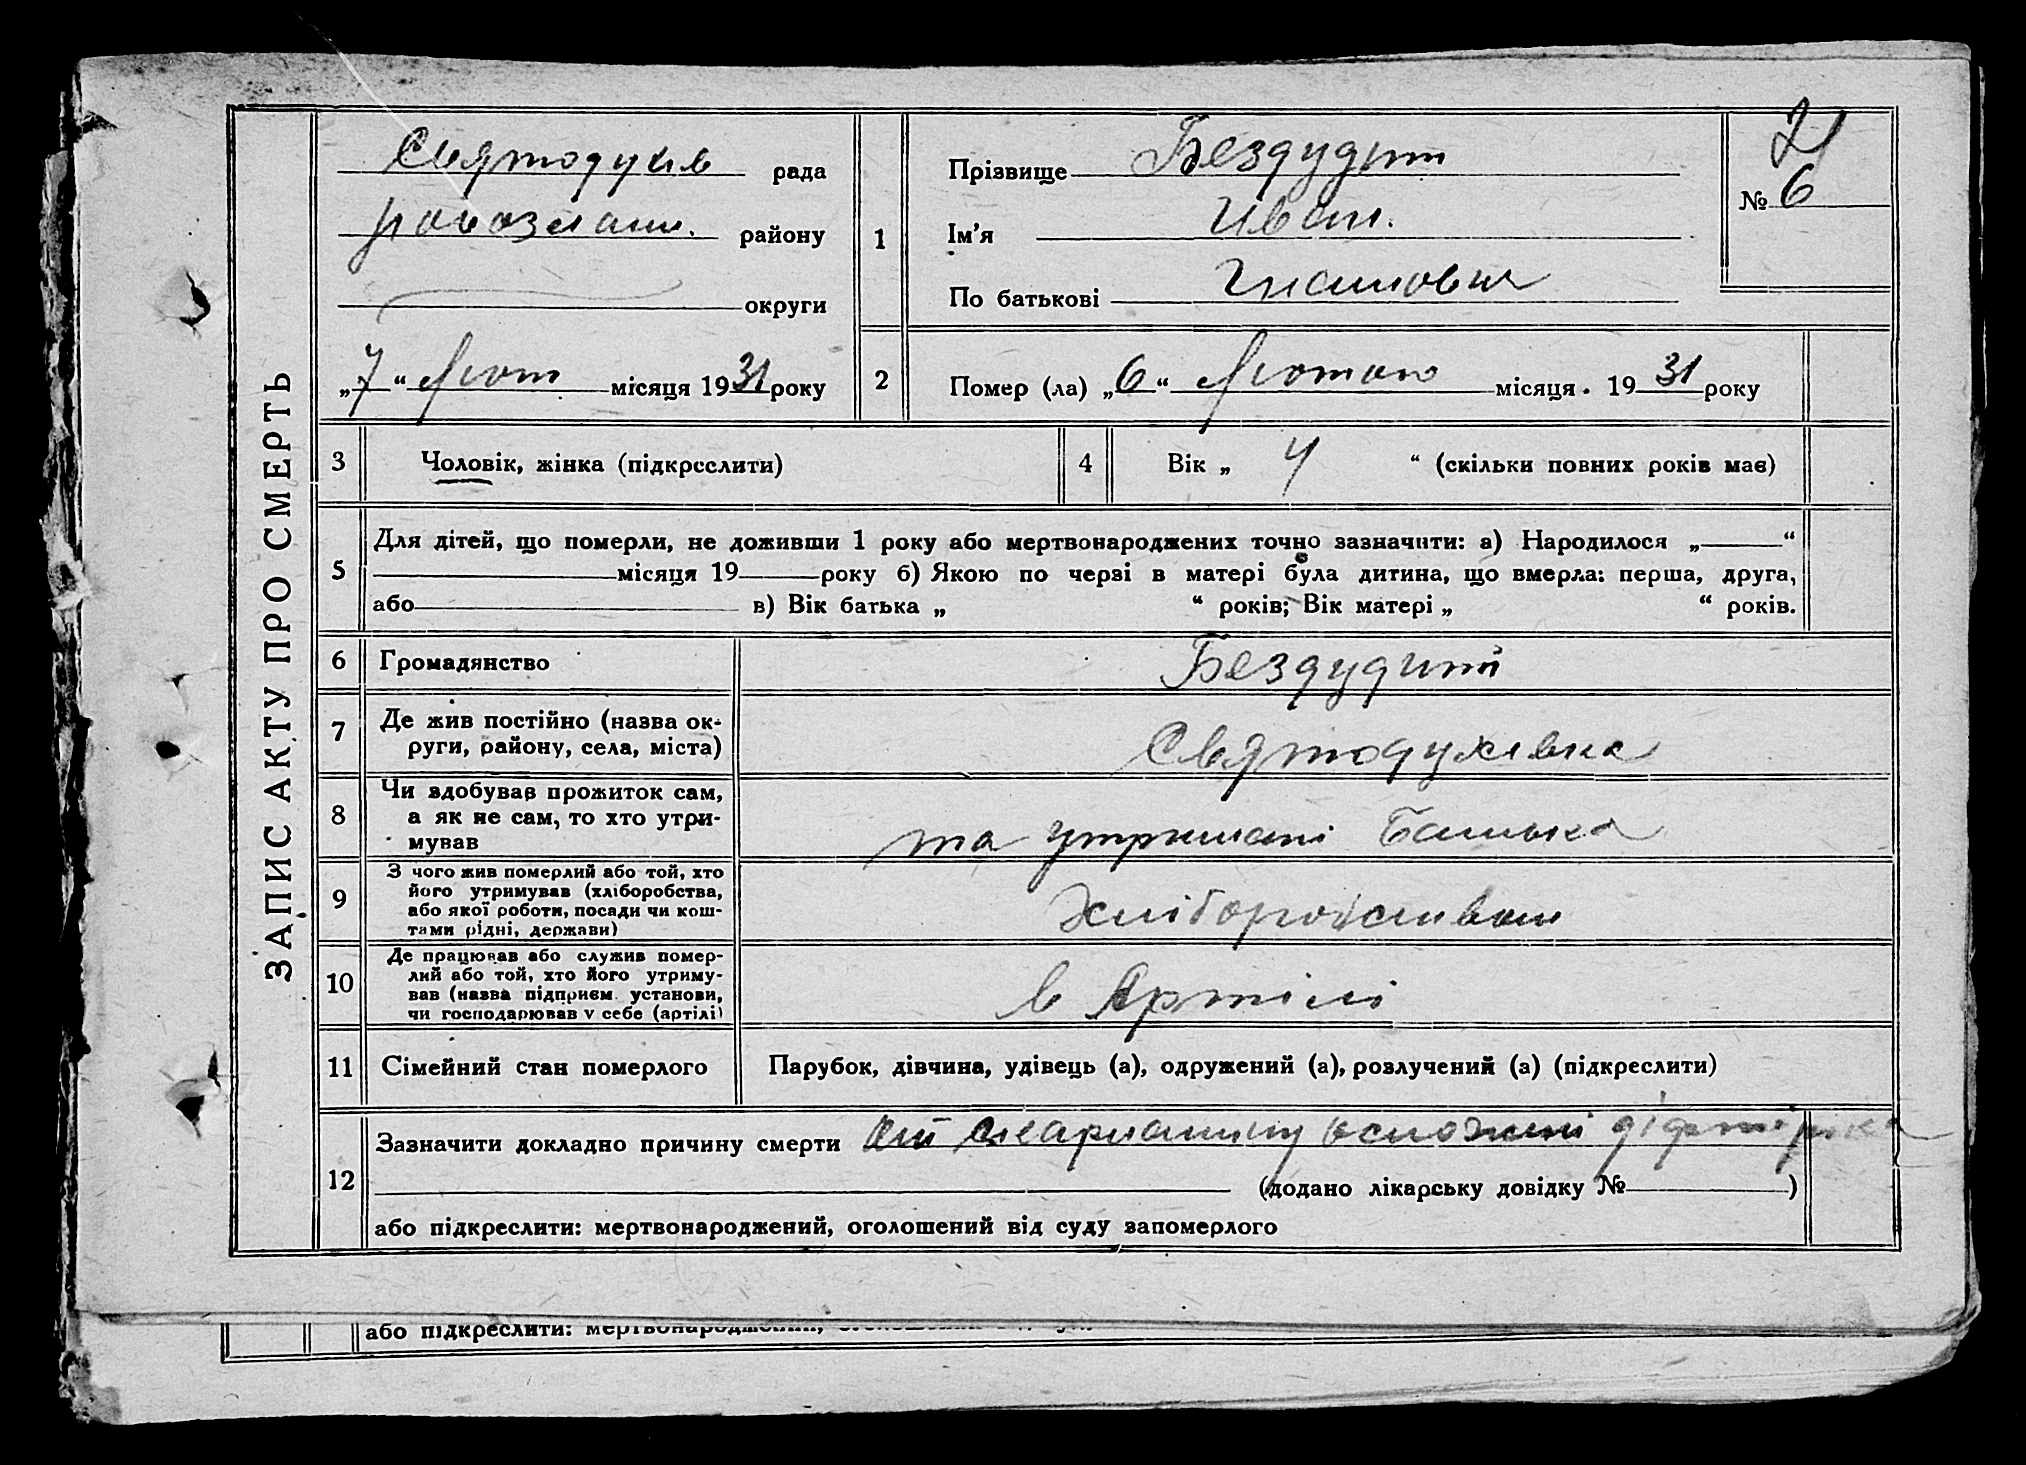 ЗАПИС АКТУ ПРО СМЕРТЬ
Святодухів рада
району
округи
„7“ Лют місяця 1931 року
1
Прізвище Бездудт
Ім’я Иван.
По батькові
№ 6
2
Помер (ла) „6“ Лютого місяця. 1931 року
3 Чоловік, жінка (підкреслити)
4 Вік „ 4 “ (скільки повних років має)
5
Для дітей, що померли, не доживши 1 року або мертвонароджених точно зазначити: а) Народилося „ “
місяця 19 року б) Якою по черзі в матері була дитина, що вмерла: перша, друга,
або в) Вік батька „ “ років; Вік матері „ “ років.
6 Громадянство Бездудтий
7 Де жив постійно (назва ок-
руги, району, села, міста)
Святодухівка
8 Чи здобував прожиток сам,
а як не сам, то хто утри-
мував
на утримані Батька
9 З чого жив померлий або той, хто
його утримував (хліборобства,
або якої роботи, посади чи кош-
тами рідні, держави)
Хліборобством
10 Де працював або служив помер-
лий або той, хто його утриму-
вав (назва підприєм. установи,
чи господарював у себе (артілі)
в Артілі
11 Сімейний стан померлого Парубок, дівчина, удівець (а), одружений (а), розлучений (а) (підкреслити)
12
Зазначити докладно причину смерти от скарлатину
(додано лікарську довідку № )
або підкреслити: мертвонароджений, оголошений від суду запомерлого
або підкреслити: мертвонароджений,